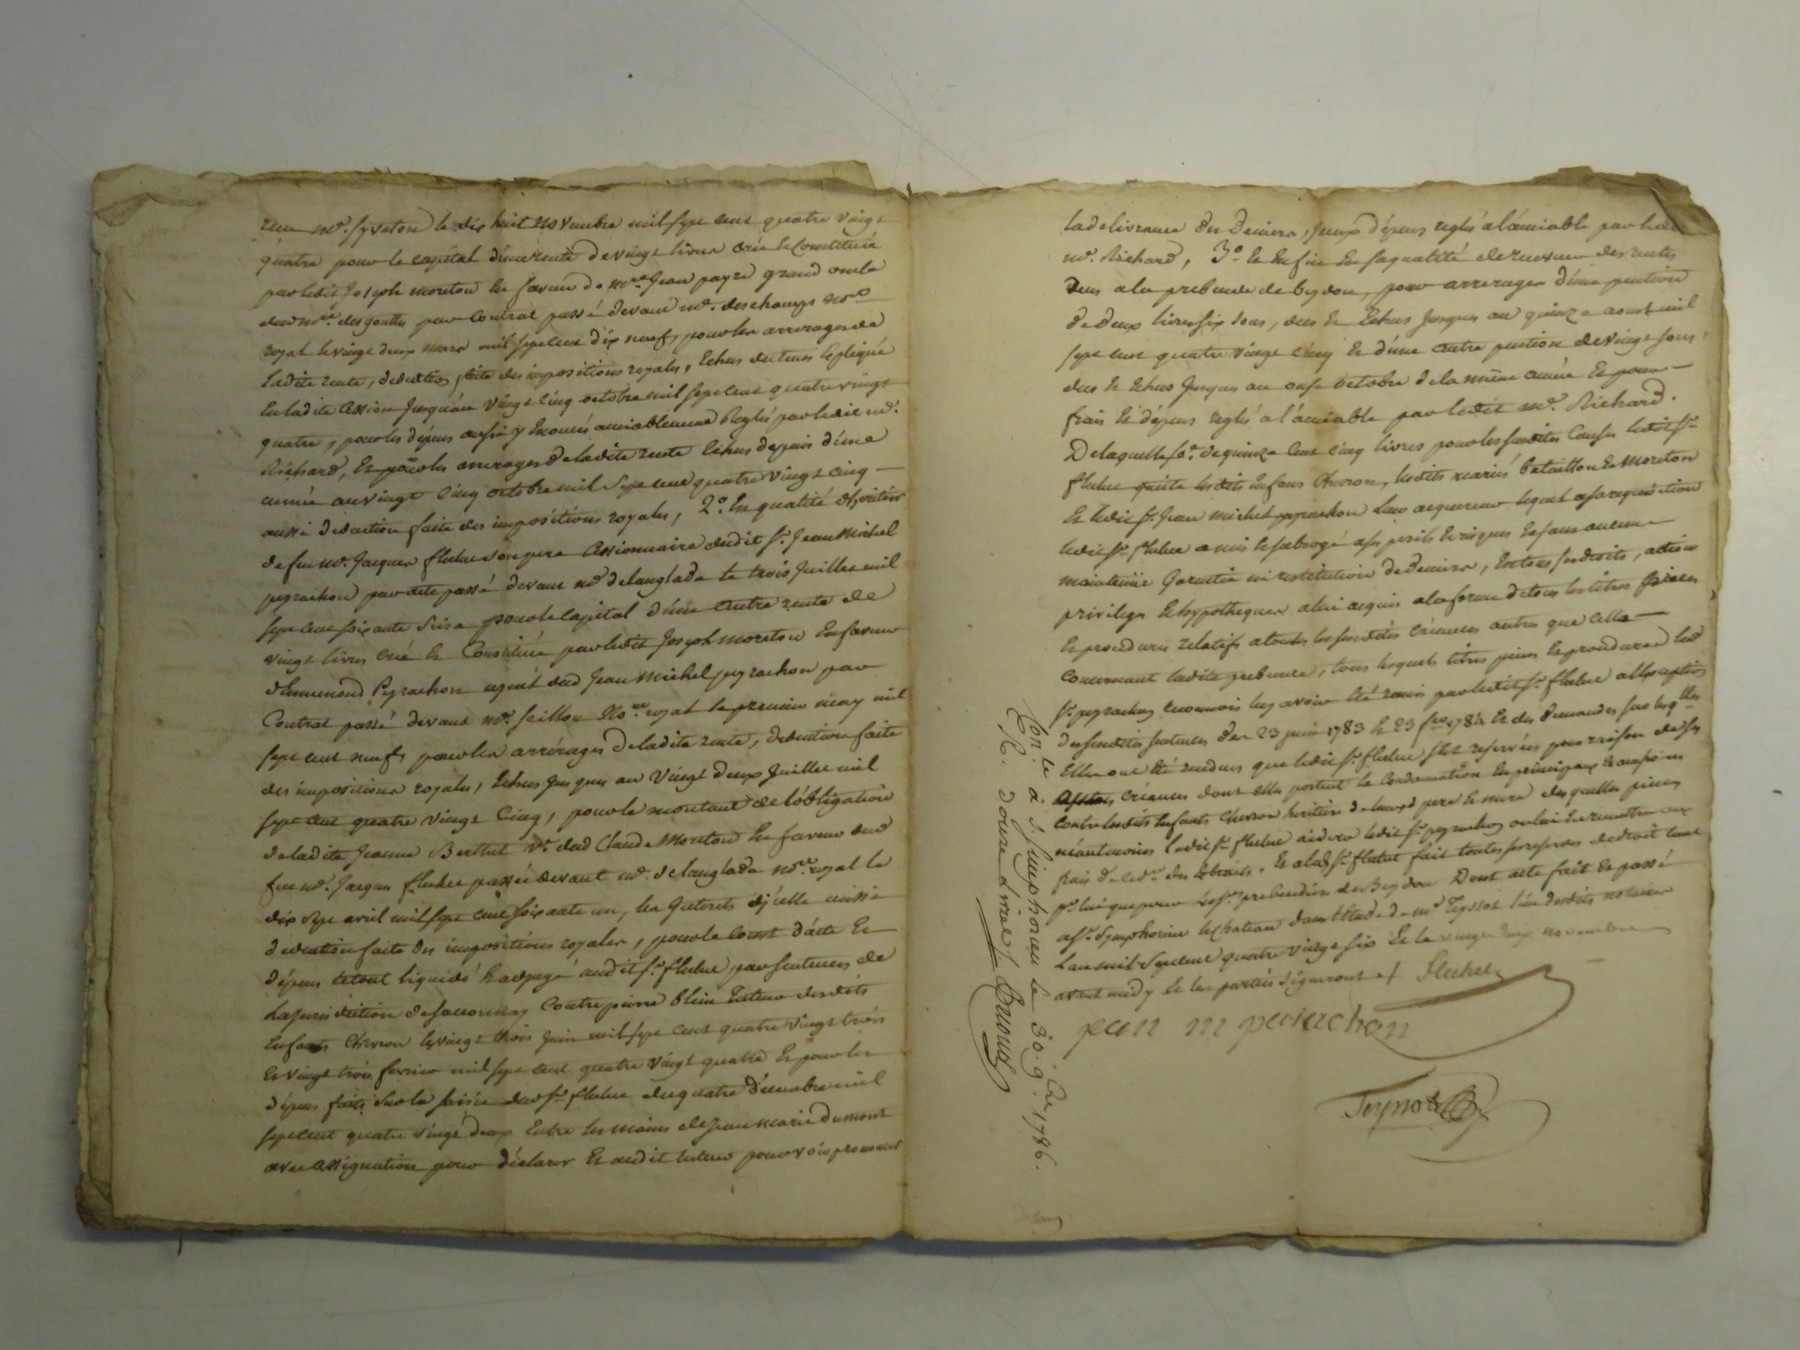 me. Syveton le dix huit novembre mil sept cent quatre vingt
quatre pour le capital d'une rente de vingt livres créée et Constituée
par ledit Joseph moreton en faveur de mre. Jean payre grand oncle
dud. mre. desgouttes par Contrat passé devant me. deschamps nore.
royal le vingt deux mars mil sept cent dix neuf, pour les arrerages de
ladite rente, deduction faite des impositions royales, Echus du tems Expliqué
En ladite Cession Jusqu'au vingt Cinq octobre mil sept cent quatre vingt
quatre, pour les dépens aussi y Enoncés amiablement Reglés par ledit me.
Richard, Et pour les arrerages de ladite rente Echus depuis d'une
année au vingt Cinq octobre mil sept cent quatre vingt cinq
aussi deduction faite des impositions royales, 2o. En qualité d'héritier
de feu me. Jacques fluhet son pere Cessionnaire dudit sr. Jean Michel
peyrachon par acte passé devant me. delanglade le trois Juillet mil
sept cent soixante seize pour le Capital d'une autre rente de
vingt livres créé et Constituée par ledit Joseph moreton En faveur
d'Ennemond Peyrachon ayeul dud. Jean Michel peyrachon par
Contrat passé devant me. seillon Nore. royal le premier may mil
sept cent neuf, pour les arrérages de ladite rente, deduction faite
des impositions royales, Echus Jusques au vingt deux Juillet mil
sept cent quatre vingt Cinq, pour le montant de l'obligation
de ladite Jeanne Berthet ve. dud. Claude Moreton En faveur dud.
feu me. Jacques fluhet passée devant me. delanglade nore. royal le
dix sept avril mil sept cent soixante un, les Interets d'icelle aussi
deduction faite des impositions royales, pour le Coust d'acte Et
dépens le tout liquidé Et adjugé audit sr. fluhet, par sentences de
la Jurisdiction de Contre pierre blein Tuteur desdits
Enfants Chevron le vingt trois Juin mil sept cent quatre vingt trois
Et vingt trois fevrier mil sept cent quatre vingt quatre Et pour les
dépens faits sur la saisie dud. sr. fluhet du quatre décembre mil
sept cent quatre vingt deux Entre les mains de Jean marie Dumont
avec assignation pour déclarer Et audit tuteur pour voir prononcer
la delivrance des Deniers, Iceux dépens reglés a l'amiable par ledit
me. Richard, 3o. Et Enfin En sa qualité de receveur des rentes
Dues a la prebende de beydon, pour arrerages d'une pention
de deux livres six sous, dus Et Echus Jusques au quinze aoust mil
sept cent quatre vingt Cinq Et d'une autre pention de vingt sous,
dus Et Echus Jusques au onze octobre de la même année Et pour
frais Et dépens reglés a l'amiable par ledit me. Richard.
De laquelle so. de quinze Cent Cinq livres pour les susdites Causes ledit sr.
fluhet quitte lesdits Enfans Chevron, lesdits mariés bataillon Et Moreton
Et ledit sr. Jean michel peyrachon leur acquereur lequel a sa requisition
ledit sr. fluhet a mis Et subrogé a ses perils Et risques Et sans aucune
maintenüe Garentie ni restitution de Deniers, En tous ses droits, actions
privileges Et hypotheques a lui acquis a la forme de tous les titres pieces
Et procedures relatifs a toutes les susdites Créances autres que celle
Concernant ladite prebende, tous lesquels titres pieces Et procedures led.
sr. peyrachon reconnoit luy avoir Eté remis par ledit sr. fluhet a l'exception
des susdites sentences des 23 juin 1783 Et 23 fer. 1784 Et des demandes sur lesqlles.
Elles ont Eté rendues que ledit sr. fluhet s'est reservées pour raison de ses
Créances dont elles portent la Condamnation En principaux Et accessoires
Contre lesdits Enfants Chevron heritiers de leurs pere Et mere desquelles pieces
néantmoins ledit sr. fluhet aidera ledit sr. peyrachon ou lui En remettra aux
frais de ce dr. des Extraits. Et a led. sr. fluhet fait toutes reserves de droit tant
pr. lui que pour les srs. prebendiers de Beydon Dont acte fait Et passé
a St. Symphorien le Chateau dans l'Etude de me. Teyssot l'un desdits notaires
L'an mil sept cent quatre vingt six Et le vingt deux novembre
avant midy Et les parties signeront et/ Fluhet
jean m peirachon
Teyssot
Con.lé à S. simphorien le 30. 9.bre 1786.
R. douze livres/.